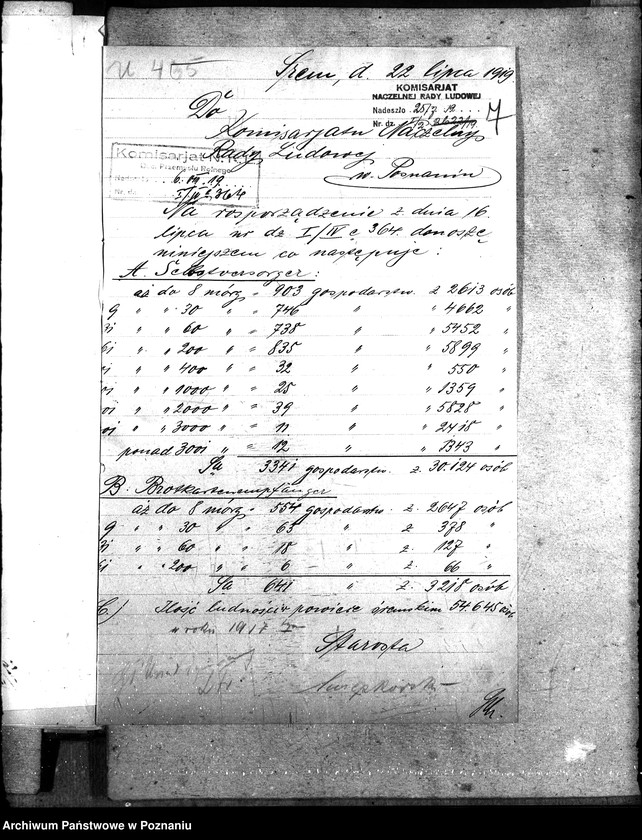 Śrem, d. 22 lipca 1919
KOMISARJAT
NACZELNEJ RADY LUDOWEJ
Nadeszło 25/7 19.
Nr. dz.
7
Do
Komisarjatu Naczelnej
Rady Ludowej
w Poznaniu
Komisarjat N.
Na rosporządzenie z dnia 16.
lipca nr dz I/IV c 364 donoszę
niniejszem co następuje:
A. Selbstversorger:
aż do 8 mórg = 903 gospodarstw. z 2613 osób
9 " " 30 " = 746 " " 4662 "
" " 60 " = 738 " " 5452 "
" " 200 " = 835 " " 5899 "
" " 400 " = 32 " " 550 "
" " 1000 " = 25 " " 1359 "
" " 2000 " = 39 " " 5828 "
" " 3000 " = 11 " " 2418 "
ponad 3001 " = 12 " " 1343 "
Sa 3341 gospodarstw. z 30.124 osób
B. Brotkartenempfänger
aż do 8 mórg = 554 gospodarstw. z 2647 osób
9 " " 30 " " 63 " z 378 "
" " 60 " " 18 " z 127 "
" " 200 " " 6 " z 66 "
Sa 641 " z 3218 osób
C.) Ilość ludności w powiecie śremskim 54.645 osób
w roku 1917
Starosta
Archiwum Państwowe w Poznaniu